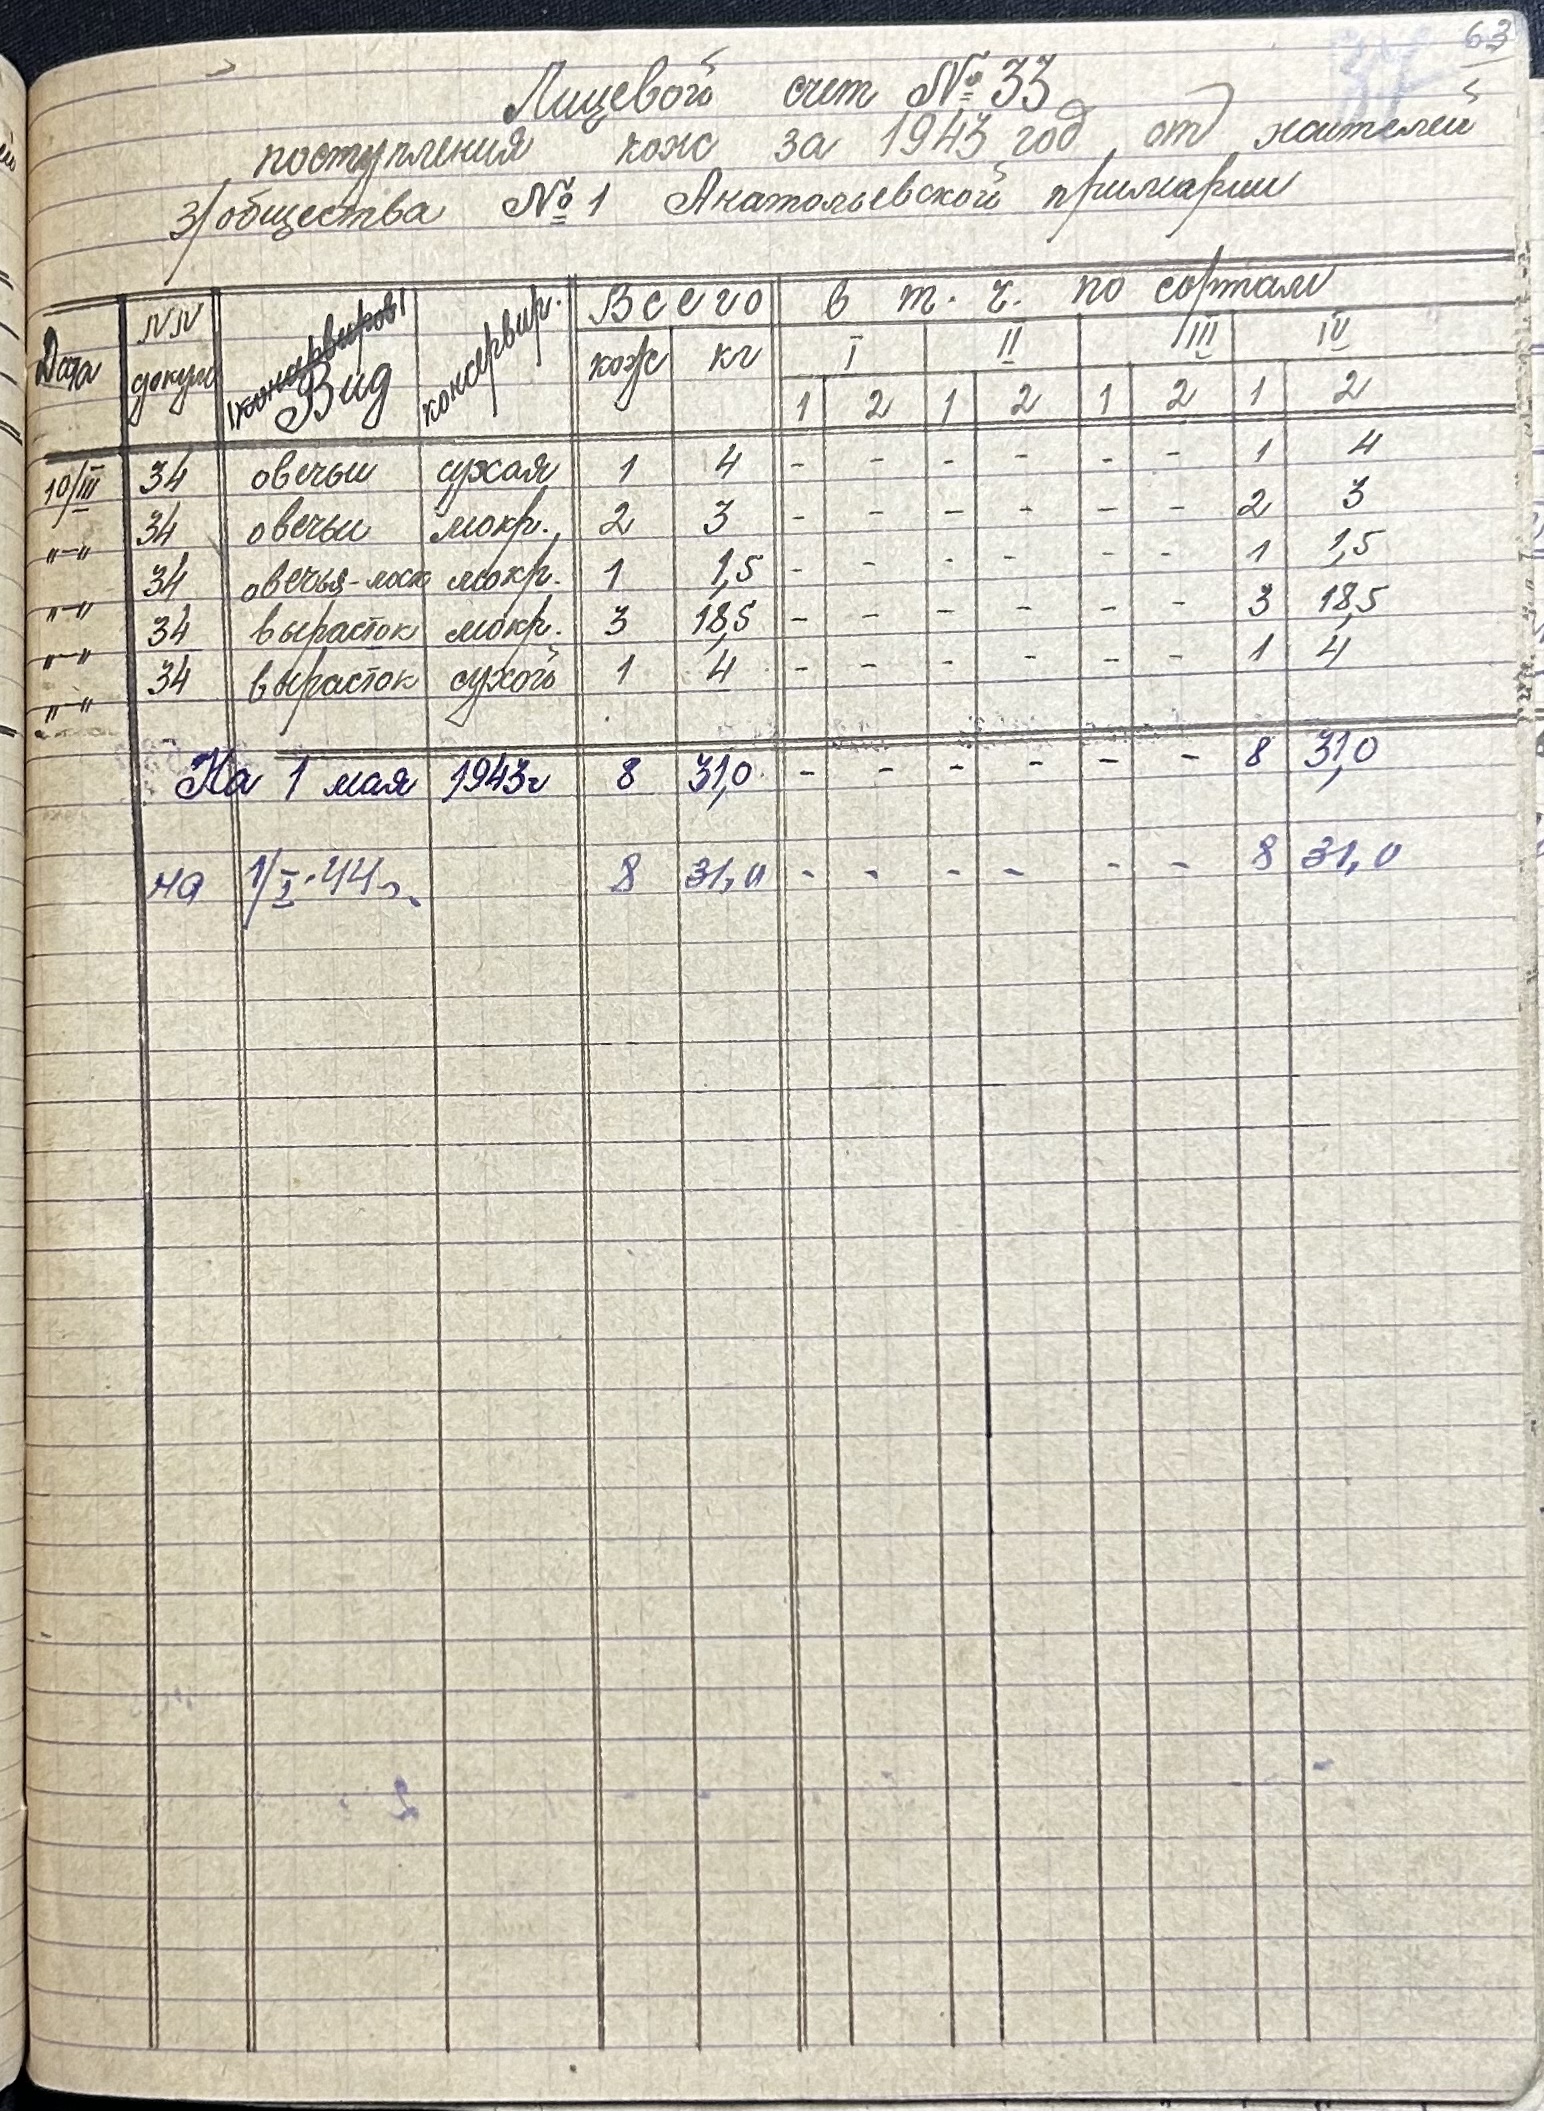 63
Лицевой счет № 33
поступления кож за 1943 год от жителей
з/общества № 1 Анатольевской примарии
Дата NN докум Вид консервир. Всего в т. ч. по сортам
кож кг I II III IV
1 2 1 2 1 2 1 2
10/III 34 овечьи сухая 1 4 - - - - - - 1 4
"-" 34 овечьи мокр. 2 3 - - - - - - 2 3
"-" 34 овечья- мокр. 1 1,5 - - - - - - 1 1,5
"-" 34 вырасток мокр. 3 18,5 - - - - - - 3 18,5
"-" 34 вырасток сухой 1 4 - - - - - - 1 4
На 1 мая 1943г 8 31,0 - - - - - - 8 31,0
на 1/I-44г. 8 31,0 - - - - - - 8 31,0